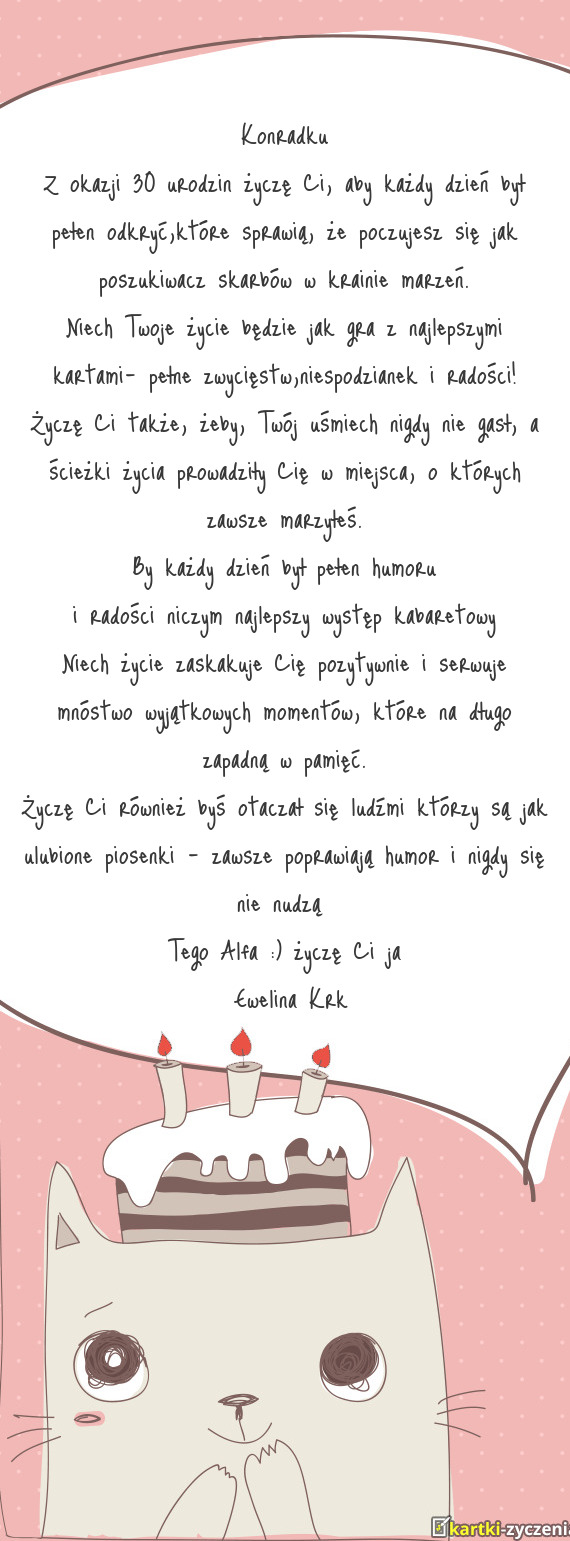 Konradku
Z okazji 30 urodzin życzę Ci, aby każdy dzień był
pełen odkryć,które sprawią, że poczujesz się jak
poszukiwacz skarbów w krainie marzeń.
Niech Twoje życie będzie jak gra z najlepszymi
kartami- pełne zwycięstw,niespodzianek i radości!
Życzę Ci także, żeby, Twój uśmiech nigdy nie gasł, a
ścieżki życia prowadziły Cię w miejsca, o których
zawsze marzyłeś.
By każdy dzień był pełen humoru
i radości niczym najlepszy występ kabaretowy
Niech życie zaskakuje Cię pozytywnie i serwuje
mnóstwo wyjątkowych momentów, które na długo
zapadną w pamięć.
Życzę Ci również byś otaczał się ludźmi którzy są jak
ulubione piosenki - zawsze poprawiają humor i nigdy się
nie nudzą
Tego Alfa :) życzę Ci ja
Ewelina Krk
kartki-zyczenia